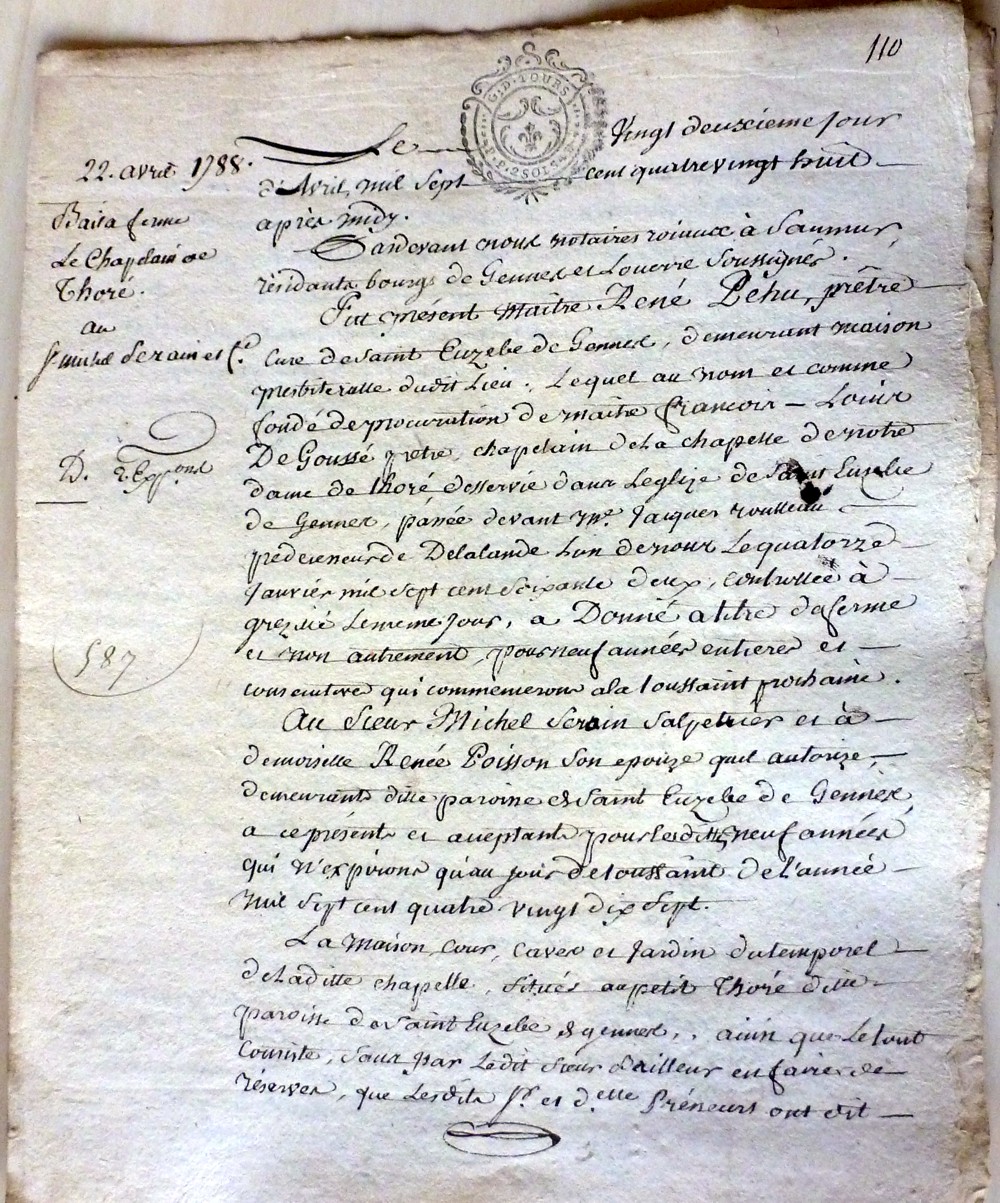 110
G.D. TOURS
P.P. 2 SOLS
22. avril 1788.
Bail a ferme
Le Chapelain de
Thoré.
au
Sr. michel Serain et
D. 2. Expons
587
Le Vingt deuxieme Jour
d'Avril, mil Sept cent quatre vingt huit
après midy.
Pardevant nous notaires royaux à Saumur,
résidants bourgs de Gennes et Louerre Soussignés.
Fut présent Maître René Péhu, prêtre
Curé de Saint Euzebe de Gennes, demeurant maison
presbiteralle dudit Lieu. Lequel au nom et comme
fondé de procuration de maitre françois - Louis
De Goussé pretre, chapelain de La chapelle de notre
dame de thoré desservie dans Leglize de Saint Euzebe
de Gennes, passée devant Me. Jacques rousseau
prédecesseur de Delalande L'un de nous Le quatorze
Janvier mil Sept cent Soixante deux, controllée à
grezillé Le meme Jour, a Donné a titre de ferme
et non autrement, pour neuf années entieres et
consecutives qui commenceront a la toussaint prochaine.
Au Sieur Michel Serain Salpetrier et à
demoiselle Renée Poisson Son epouze quil autorize,
demeurants ditte paroisse de Saint Euzebe de Gennes,
a ce présents et acceptants pour Lesdittes neuf années
qui n'expirons qu'au jour de toussaint de L'année
mil Sept cent quatre vingt dix Sept.
La Maison, Cour, Caves et Jardin du temporel
de Laditte chapelle, Situés au petit Thoré ditte
paroisse de Saint Euzebe de gennes, ainsi que Le tout
Consiste, Sans par Ledit Sieur Bailleur en faire de
réserves, que Lesdits Sr. et d.elle Préneurs ont dit